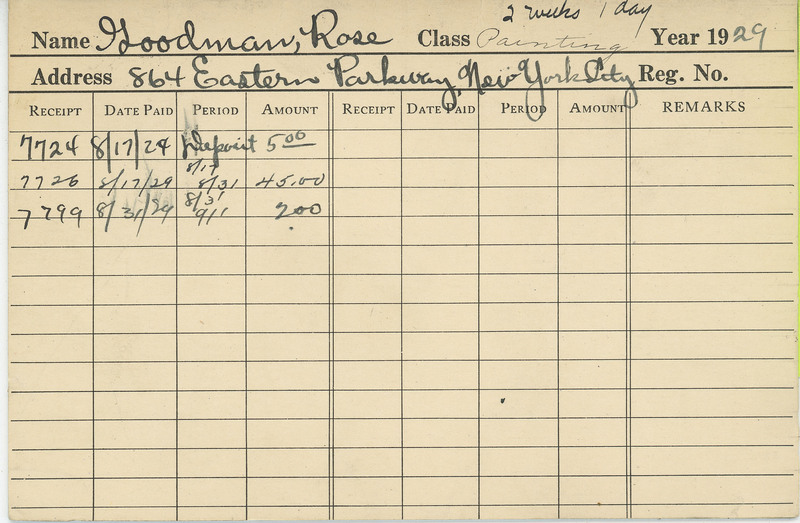 2 weeks 1 day
Name Goodman, Rose Class Painting Year 1929
Address 864 Eastern Parkway, New York City Reg. No.
RECEIPT DATE PAID PERIOD AMOUNT RECEIPT DATE PAID PERIOD AMOUNT REMARKS
7724 8/17/29 Deposit 5.00
8/17
7726 8/17/29 8/31 45.00
8/31
7799 8/31/29 9/1 2.00